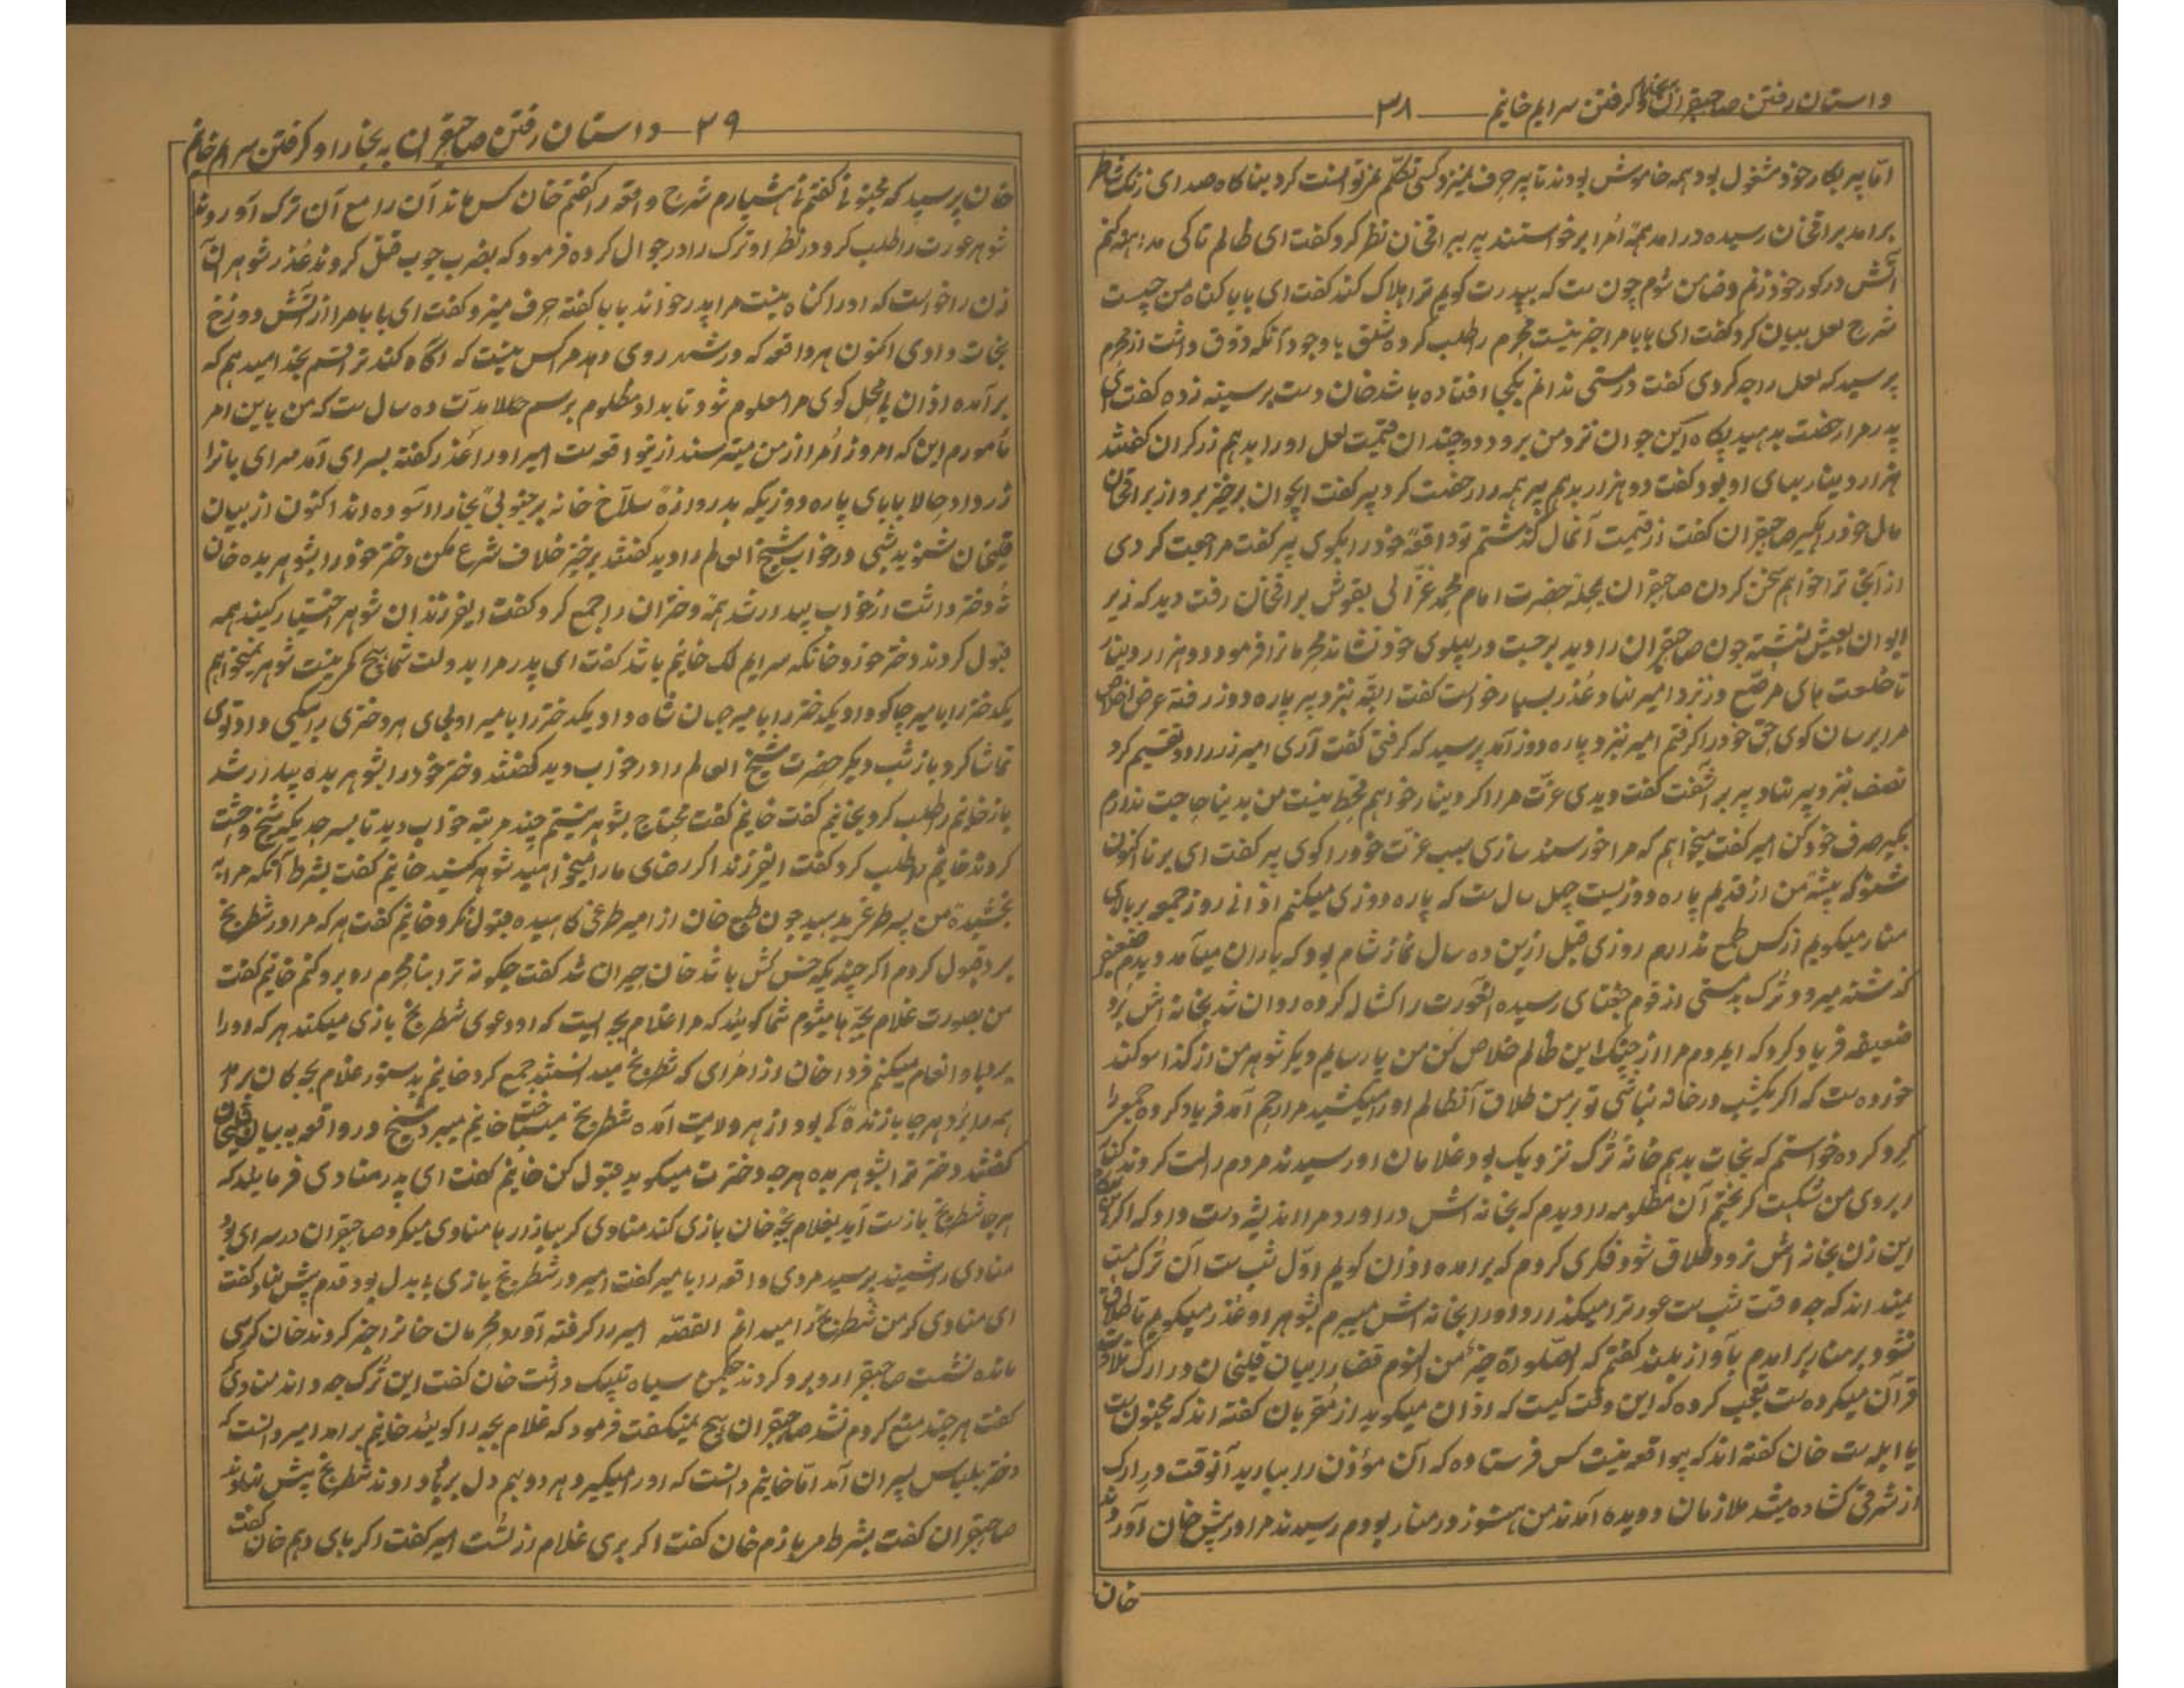 داستان رفتن صاحبقران به بخارا و گرفتن سرایم خانیم ۳۸
اما پیر بکار خود مشغول بود همه خاموش بودند تا پیر حرف نمیزد کسی تکلم نمیتوانست کرد بناگاه صدای زنگ شاطر
برآمد براقخان رسیده درآمد همه اُمرا برخواستند پیر ببراقخان نظر کرد گفت ای ظالم تا کی مداهنه کنم
آتش در کور خود زنم و ضامن شوم چون ست که بپدرت گویم ترا هلاک کند گفت ای بابا گناه من چیست
شرح لعل بیان کرد گفت ای بابا مرا خبر نیست محرم را طلب کرده شلق با وجود آنکه ذوق داشت از محرم
پرسید که لعل را چه کردی گفت در مستی ندانم بکجا افتاده باشد خان دست بر سینه زده گفت ای
پدر مرا رخصت بدهید پگاه این جوان نزد من برود دو چندان قیمت لعل او را بدهم زرگران گفتند
هزار دینار بهای او بود گفت دو هزار بدهم پیر همه را رخصت کرد پیر گفت ایجوان برخیز برو از براقخان
مال خود را بگیر صاحبقران گفت از قیمت آنمال گذشتم تو واقعه خود را بگوی پیر گفت مراجعت کردی
از آنجا ترا خواهم سخن کردن صاحبقران بمحله حضرت امام محمد غزالی بقوش براقخان رفت دید که زیر
ایوان بعیش نشسته چون صاحبقران را دید برجست در پهلوی خود نشاند محرمانرا فرمود دو هزار دینار
تا خلعت های مرصع در نزد امیر نهاد عُذر بسیار خواست گفت البته نزد پیر پاره دوز رفته عرض اخلاص
مرا برسان گوی حق خود را گرفتم امیر نزد پاره دوز آمد پرسید که گرفتی گفت آری امیر زر را دو تقسیم کرد
نصف نزد پیر نهاد پیر برآشفت گفت دیدی عزّت مرا اگر دینار خواهم قحط نیست من بدینا حاجت ندارم
بگیر صرف خود کن امیر گفت میخواهم که مرا خورسند سازی سبب عزّت خود را گوی پیر گفت ای برنا اکنون
شنو که پیشهٔ من از قدیم پاره دوزیست چهل سال ست که پاره دوزی میکنم اذانی روز جمعه بر بالای
منار میگویم از کس طمع ندارم روزی قبل ازین ده سال نماز شام بود که باران میآمد دیدم ضعیفه
گذشته میرود تُرک بدمستی از قوم جغتای رسیده العورت را کشال کرده روان شد بخانه اش بُرد
ضعیفه فریاد کرد که ایمردم مرا از چنگ این ظالم خلاص کُن من پارسایم دیگر شوهر من از گذا سوگند
خورده ست که اگر یکشب در خانه نباشی تو بر من طلاق آنظالم او را میکشید مرا رحم آمد فریاد کرده جمع را
گرد کرده خواستم که نجات بدهم خانه تُرک نزدیک بود غلامان او رسیدند مردم را لت کردند
ابروی من شکست گریختم آن مظلومه را دیدم که بخانه اش درآورد مرا اندیشه دست داد که اگر
این زن بخانه اش نرود طلاق شود فکری کردم که برآمده اذان گویم اوّل شب ست آن تُرک مست
نمیداند که چه وقت شب ست عورترا میگذارد او را بخانه اش میبرم بشوهر او عُذر میگویم تا طلاق
نشود بر منار برآمدم بآواز بلند گفتم که الصلوة خیرٌ من النوم قضا را بیان قلیخان در ارک تلاوت
قرآن میکرده ست تعجب کرده که این وقت کیست که اذان میگوید از مُقربان گفته اند که مجنون ست
یا ابله ست خان گفته اند که بیواقعه نیست کس فرستاده که آن مؤذن را بیارید آنوقت در ارک
از شرقی گشاده میشد ملازمان دویده آمدند من هنوز در منار بودم رسیدند مرا در پیش خان آوردند
خان
۳۹ داستان رفتن صاحبقران به بخارا و گرفتن سرایم خانیم
خان پرسید که مجنونی گفتم نی هشیارم شرح واقعه را گفتم خان کس ماند آن را مع آن ترک آوردند
شوهر عورت را طلب کرد در نظر او ترک را در جوال کرده فرمود که بضرب چوب قتل کردند عُذر شوهر آن
زن را خواست که او را گناه نیست مرا پدر خواند بابا گفته حرف میزد گفت ای بابا مرا از آتش دوزخ
نجات دادی اکنون هر واقعه که در شهر روی دهد مرا کس نیست که آگاه کند ترا قسم بخدا میدهم که
برآمده اذان بیمحل گوی مرا معلوم شود تا بداد مظلوم برسم حالا مدت ده سال ست که من باین امر
مأمورم این که امروز اُمرا از من میترسند ازینواقعه ست امیر او را عُذر گفته بسرای آمد سرای بانرا
زر داد حالا بابای پاره دوز یکه بدروازهٔ سلاّخ خانه بر جنوبی بخارا آسوده اند اکنون از بیان
قلیخان شنوید شبی در خواب شیخ العالم را دید گفتند برخیز خلاف شرع مکن دختر خود را بشوهر بده خان
نُه دختر داشت از خواب بیدار شد همهٔ دختران را جمع کرد گفت ایفرزندان شوهر اختیار کنید همه
قبول کردند دختر خورد خانکه سرایم لک خانیم باشد گفت ای پدر مرا بدولت شما هیچ کم نیست شوهر نمیخواهم
یکدختر را بامیر چاکو داد و یکدختر را بامیر جهان شاه داد یکدختر را بامیر اولجای هر دختری براییکی داد توی
تماشا کرد باز شب دیگر حضرت شیخ العالم را در خواب دید گفتند دختر خود را بشوهر بده بیدار شد
باز خانیم را طلب کرد بخانیم گفت خانیم گفت محتاج بشوهر نیستم چند مرتبه خواب دید تا بسرحدیکه شیخ وحشت
کردند خانیم را طلب کرد گفت ایفرزند اگر رضای ما را میخواهید شوهر کنید خانیم گفت بشرط آنکه مرا به
بخشیدهٔ من پسر طرغی بدهید چون طمع خان از امیر طرغی کاهیده قبول نکرد خانیم گفت هر که مرا در شطرنج
برد قبول کردم اگر چندیکه خس کش باشد خان حیران شد گفت چگونه ترا بنامحرم روبرو کنم خانیم گفت
من بصورت غلام بچه ها میشوم شما گویید که مرا غلام بچه ایست که او دعوی شطرنج بازی میکند هر که او را
برد با او انعام میکنم فردا خان از اُمرای که شطرنج میدانستند جمع کرد خانیم بدستور غلام بچه گان برآمد
همه را برد هر جا بازندهٔ که بود از هر ولایت آمده شطرنج میباخت خانیم میبرد شیخ در واقعه به بیان قلیخان
گفتند دختر ترا بشوهر بده هر چه دخترت میگوید قبول کن خانیم گفت ای پدر منادی فرمایید که
هر جا شطرنج بازست آید بغلام بچهٔ خان بازی کند منادی گر ببازارها منادی میکرد صاحبقران در سرای بود
منادی را شنید پرسید مردی واقعه را بامیر گفت امیر در شطرنج بازی بیبدل بود قدم پیش نهاد گفت
ای منادی گر من شطرنج را میدانم القصّه امیر را گرفته آورد محرمان خانرا خبر کردند خان کرسی
مانده نشست صاحبقرانرا روبرو کردند چکمن سیاه تپیک داشت خان گفت این تُرک چه داند منادی گر
گفت هر چند منع کردم نشد صاحبقران هیچ نمیگفت فرمود که غلام بچه را گویید خانیم برآمد امیر دانست که
دختر بلباس پسران آمد امّا خانیم دانست که او را میگیرد هر دو بهم دل برباد دادند شطرنج پیش نهادند
صاحبقران گفت بشرط مر بازم خان گفت اگر بری غلام از تُست امیر گفت اگر بای دهم خان گفت